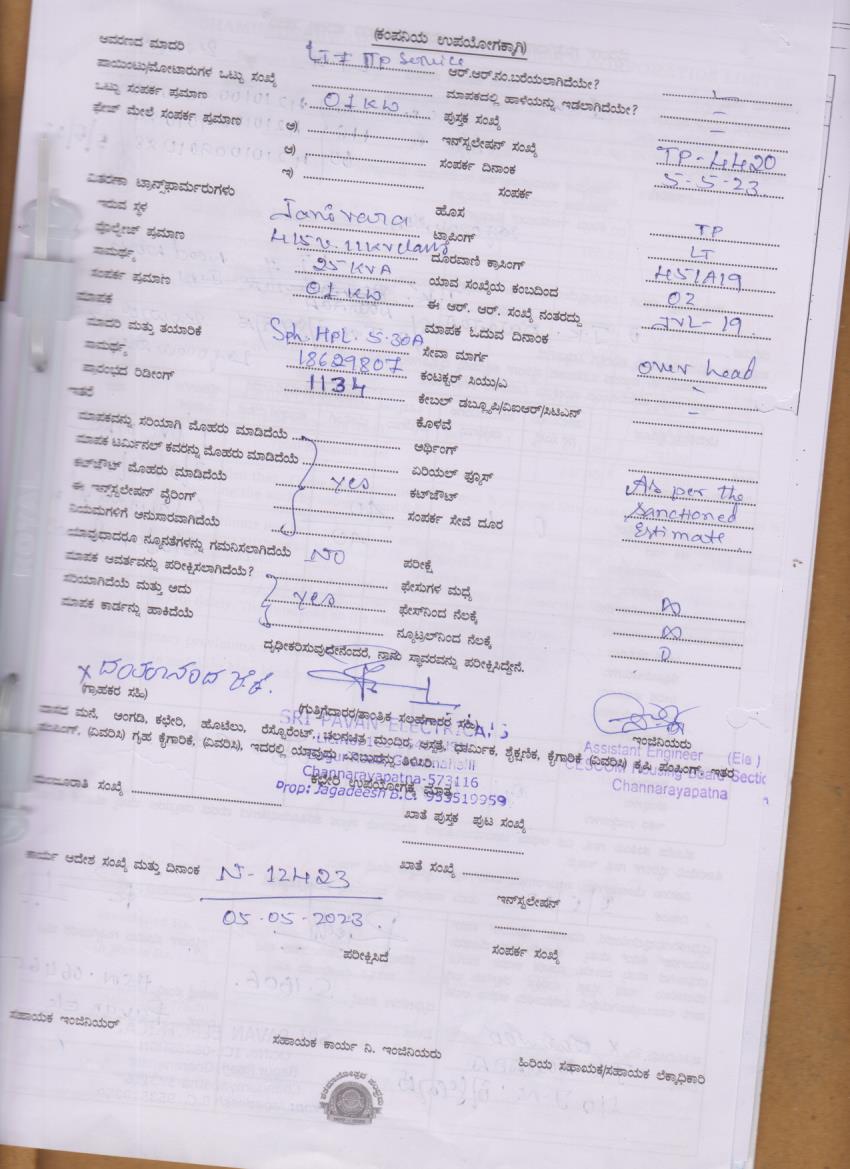 (ಕಂಪನಿಯ ಉಪಯೋಗಕ್ಕಾಗಿ)
ಆವರಣದ ಮಾದರಿ LT7 TP Service ಆರ್.ಆರ್.ನಂ.ಬರೆಯಲಾಗಿದೆಯೇ?
ಪಾಯಿಂಟು/ಮೋಟಾರುಗಳ ಒಟ್ಟು ಸಂಖ್ಯೆ ಮಾಪಕದಲ್ಲಿ ಹಾಳೆಯನ್ನು ಇಡಲಾಗಿದೆಯೇ? -
ಒಟ್ಟು ಸಂಪರ್ಕ ಪ್ರಮಾಣ 01 KW ಪುಸ್ತಕ ಸಂಖ್ಯೆ -
ಫೇಸ್ ಮೇಲೆ ಸಂಪರ್ಕ ಪ್ರಮಾಣ ಅ) ಇನ್‌ಸ್ಟಲೇಷನ್ ಸಂಖ್ಯೆ TP-4420
ಆ) ಸಂಪರ್ಕ ದಿನಾಂಕ 5-5-23
ಇ) ಸಂಪರ್ಕ
ವಿತರಣಾ ಟ್ರಾನ್ಸ್‌ಫಾರ್ಮರುಗಳು ಹೊಸ TP
ಇರುವ ಸ್ಥಳ Janivara ಟ್ಯಾಪಿಂಗ್ LT
ವೋಲ್ಟೇಜ್ ಪ್ರಮಾಣ 415v. 11kv ದೂರವಾಣಿ ಕ್ರಾಸಿಂಗ್ 451A19
ಸಾಮರ್ಥ್ಯ 25 KVA ಯಾವ ಸಂಖ್ಯೆಯ ಕಂಬದಿಂದ 02
ಸಂಪರ್ಕ ಪ್ರಮಾಣ 01 KW ಈ ಆರ್. ಆರ್. ಸಂಖ್ಯೆ ನಂತರದ್ದು JVL-19
ಮಾಪಕ ಮಾಪಕ ಓದುವ ದಿನಾಂಕ
ಮಾದರಿ ಮತ್ತು ತಯಾರಿಕೆ Sph. HPL. 5-30A ಸೇವಾ ಮಾರ್ಗ over head
ಸಾಮರ್ಥ್ಯ 18629807 ಕಂಟಕ್ಟರ್ ಸಿಯು/ಎ -
ಪ್ರಾರಂಭದ ರಿಡೀಂಗ್ 1134 ಕೇಬಲ್ ಡಬ್ಲ್ಯೂಪಿ/ವಿಐಆರ್/ಸಿಟಿಎಸ್ -
ಇತರೆ ಕೊಳವೆ
ಮಾಪಕವನ್ನು ಸರಿಯಾಗಿ ಮೊಹರು ಮಾಡಿದೆಯೆ ಆರ್ಥಿಂಗ್
ಮಾಪಕ ಟರ್ಮಿನಲ್ ಕವರನ್ನು ಮೊಹರು ಮಾಡಿದೆಯೆ ಏರಿಯಲ್ ಫ್ಯೂಸ್
ಕಟ್‌ಔಟ್ ಮೊಹರು ಮಾಡಿದೆಯೆ yes ಕಟ್‌ಔಟ್ As per the
ಈ ಇನ್‌ಸ್ಟಲೇಷನ್ ವೈರಿಂಗ್ ಸಂಪರ್ಕ ಸೇವೆ ದೂರ sanctioned
ನಿಯಮಗಳಿಗೆ ಅನುಸಾರವಾಗಿದೆಯೆ Estimate
ಯಾವುದಾದರೂ ನ್ಯೂನತೆಗಳನ್ನು ಗಮನಿಸಲಾಗಿದೆಯೆ NO ಪರೀಕ್ಷೆ
ಮಾಪಕ ಆವರ್ತವನ್ನು ಪರೀಕ್ಷಿಸಲಾಗಿದೆಯೆ? ಫೇಸುಗಳ ಮಧ್ಯೆ
ಸರಿಯಾಗಿದೆಯೆ ಮತ್ತು ಅದು yes ಫೇಸ್‌ನಿಂದ ನೆಲಕ್ಕೆ
ಮಾಪಕ ಕಾರ್ಡನ್ನು ಹಾಕಿದೆಯೆ ನ್ಯೂಟ್ರಲ್‌ನಿಂದ ನೆಲಕ್ಕೆ
ದೃಢೀಕರಿಸುವುದೇನೆಂದರೆ, ನಾನು ಸ್ಥಾವರವನ್ನು ಪರೀಕ್ಷಿಸಿದ್ದೇನೆ.
(ಗ್ರಾಹಕರ ಸಹಿ) (ಗುತ್ತಿಗೆದಾರರ/ತಾಂತ್ರಿಕ ಸಲಹೆಗಾರರ ಸಹಿ) ಇಂಜಿನಿಯರು
SRI PAVAN ELECTRICALS
ವಾಸದ ಮನೆ, ಅಂಗಡಿ, ಕಛೇರಿ, ಹೊಟೆಲು, ರೆಸ್ಟೋರೆಂಟ್, ಚಲನಚಿತ್ರ ಮಂದಿರ, ಆಸ್ಪತ್ರೆ, ಧಾರ್ಮಿಕ, ಶೈಕ್ಷಣಿಕ, ಕೈಗಾರಿಕೆ (ವಿವರಿಸಿ) ಕೃಷಿ ಪಂಪಿಂಗ್, ಇತರ
ಪಂಪಿಂಗ್, (ವಿವರಿಸಿ) ಗೃಹ ಕೈಗಾರಿಕೆ, (ವಿವರಿಸಿ), ಇದರಲ್ಲಿ ಯಾವುದು ಎಂಬುದನ್ನು ತಿಳಿಸಿರಿ.
Assistant Engineer (Ele)
CESCOM Housing Board Section
Channarayapatna
Channarayapatna-573116
ಕಛೇರಿ ಉಪಯೋಗಕ್ಕೆ ಮಾತ್ರ
Prop: Jagadeesh B.C. 953519959
ಮಂಜೂರಾತಿ ಸಂಖ್ಯೆ ಖಾತೆ ಪುಸ್ತಕ ಪುಟ ಸಂಖ್ಯೆ
ಕಾರ್ಯ ಆದೇಶ ಸಂಖ್ಯೆ ಮತ್ತು ದಿನಾಂಕ N-12423 ಖಾತೆ ಸಂಖ್ಯೆ
05-05-2023 ಇನ್‌ಸ್ಟಲೇಷನ್
ಪರೀಕ್ಷಿಸಿದೆ ಸಂಪರ್ಕ ಸಂಖ್ಯೆ
ಸಹಾಯಕ ಇಂಜಿನಿಯರ್ ಸಹಾಯಕ ಕಾರ್ಯ ನಿ. ಇಂಜಿನಿಯರು ಹಿರಿಯ ಸಹಾಯಕ/ಸಹಾಯಕ ಲೆಕ್ಕಾಧಿಕಾರಿ